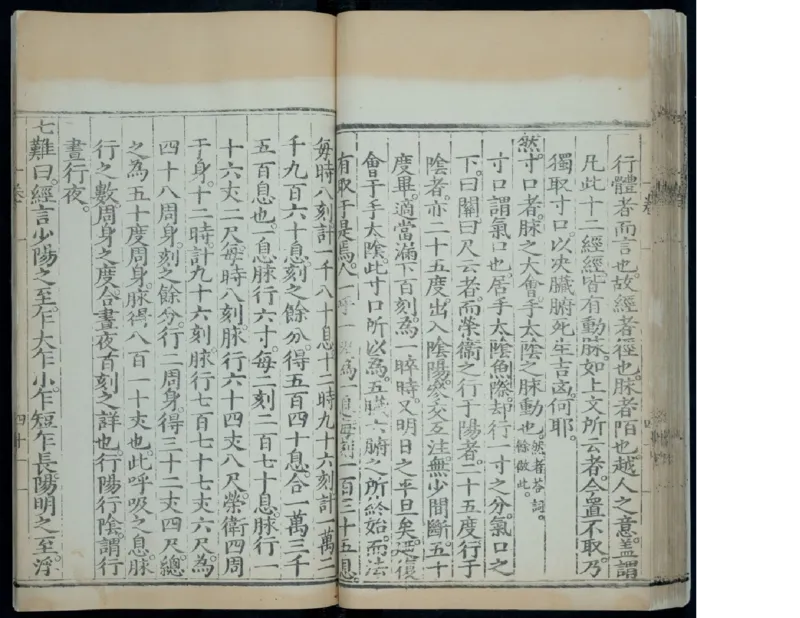 行體者而言也。故經者徑也。脉者陌也。越人之意。盖謂
凡此十二經經皆有動脉。如上文所云者。今置不取。乃
獨取寸口以决臟腑死生吉凶。何耶。
然。寸口者。脉之大會手太陰之脉動也。然者荅詞。餘倣此。
寸口謂氣口也。居手太陰魚際。却行一寸之分。氣口之
下。曰關曰尺云者。而榮衛之行于陽者。二十五度。行于
陰者。亦二十五度。出入陰陽。參交互注。無少間斷。五十
度畢。適當漏下百刻。為一晬時。又明日之平旦矣。廼復
會于手太陰。此寸口所以為五臟六腑之所終始。而法
有取于是焉。人一呼一吸為一息。每刻一百三十五息。
每時八刻。計一千八十息。十二時九十六刻。計一萬二
千九百六十息。刻之餘分。得五百四十息。合一萬三千
五百息也。一息脉行六寸。每二刻二百七十息。脉行一
十六丈二尺。每時八刻。脉行六十四丈八尺。榮衛四周
于身。十二時。計九十六刻。脉行七百七十七丈六尺。為
四十八周身。刻之餘分。行二周身。得三十二丈四尺。總
之為五十度周身。脉得八百一十丈也。此呼吸之息。脉
行之數。周身之度。合晝夜百刻之詳也。行陽行陰。謂行
晝行夜。
七難曰。經言少陽之至。乍大乍小。乍短乍長。陽明之至。浮